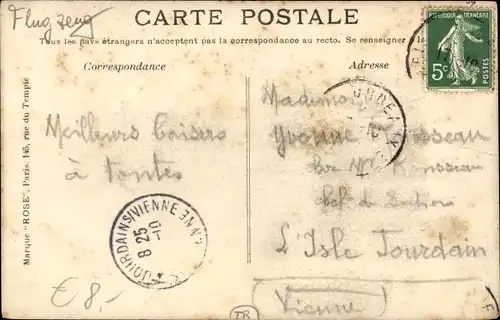 Flugzeug
CARTE POSTALE
Tous les pays étrangers n'acceptent pas la correspondance au recto. Se renseigner à la
Correspondance
Adresse
REPUBLIQUE FRANÇAISE
5c POSTES
Marque "ROSE", Paris. 145, rue du Temple
Meilleurs baisers
à toutes
Mademoi
Yvonne
chez Mr Rousseau
chef de
L'Isle Jourdain
Vienne
VIENNE
8 25
10
€ 8,-
TR